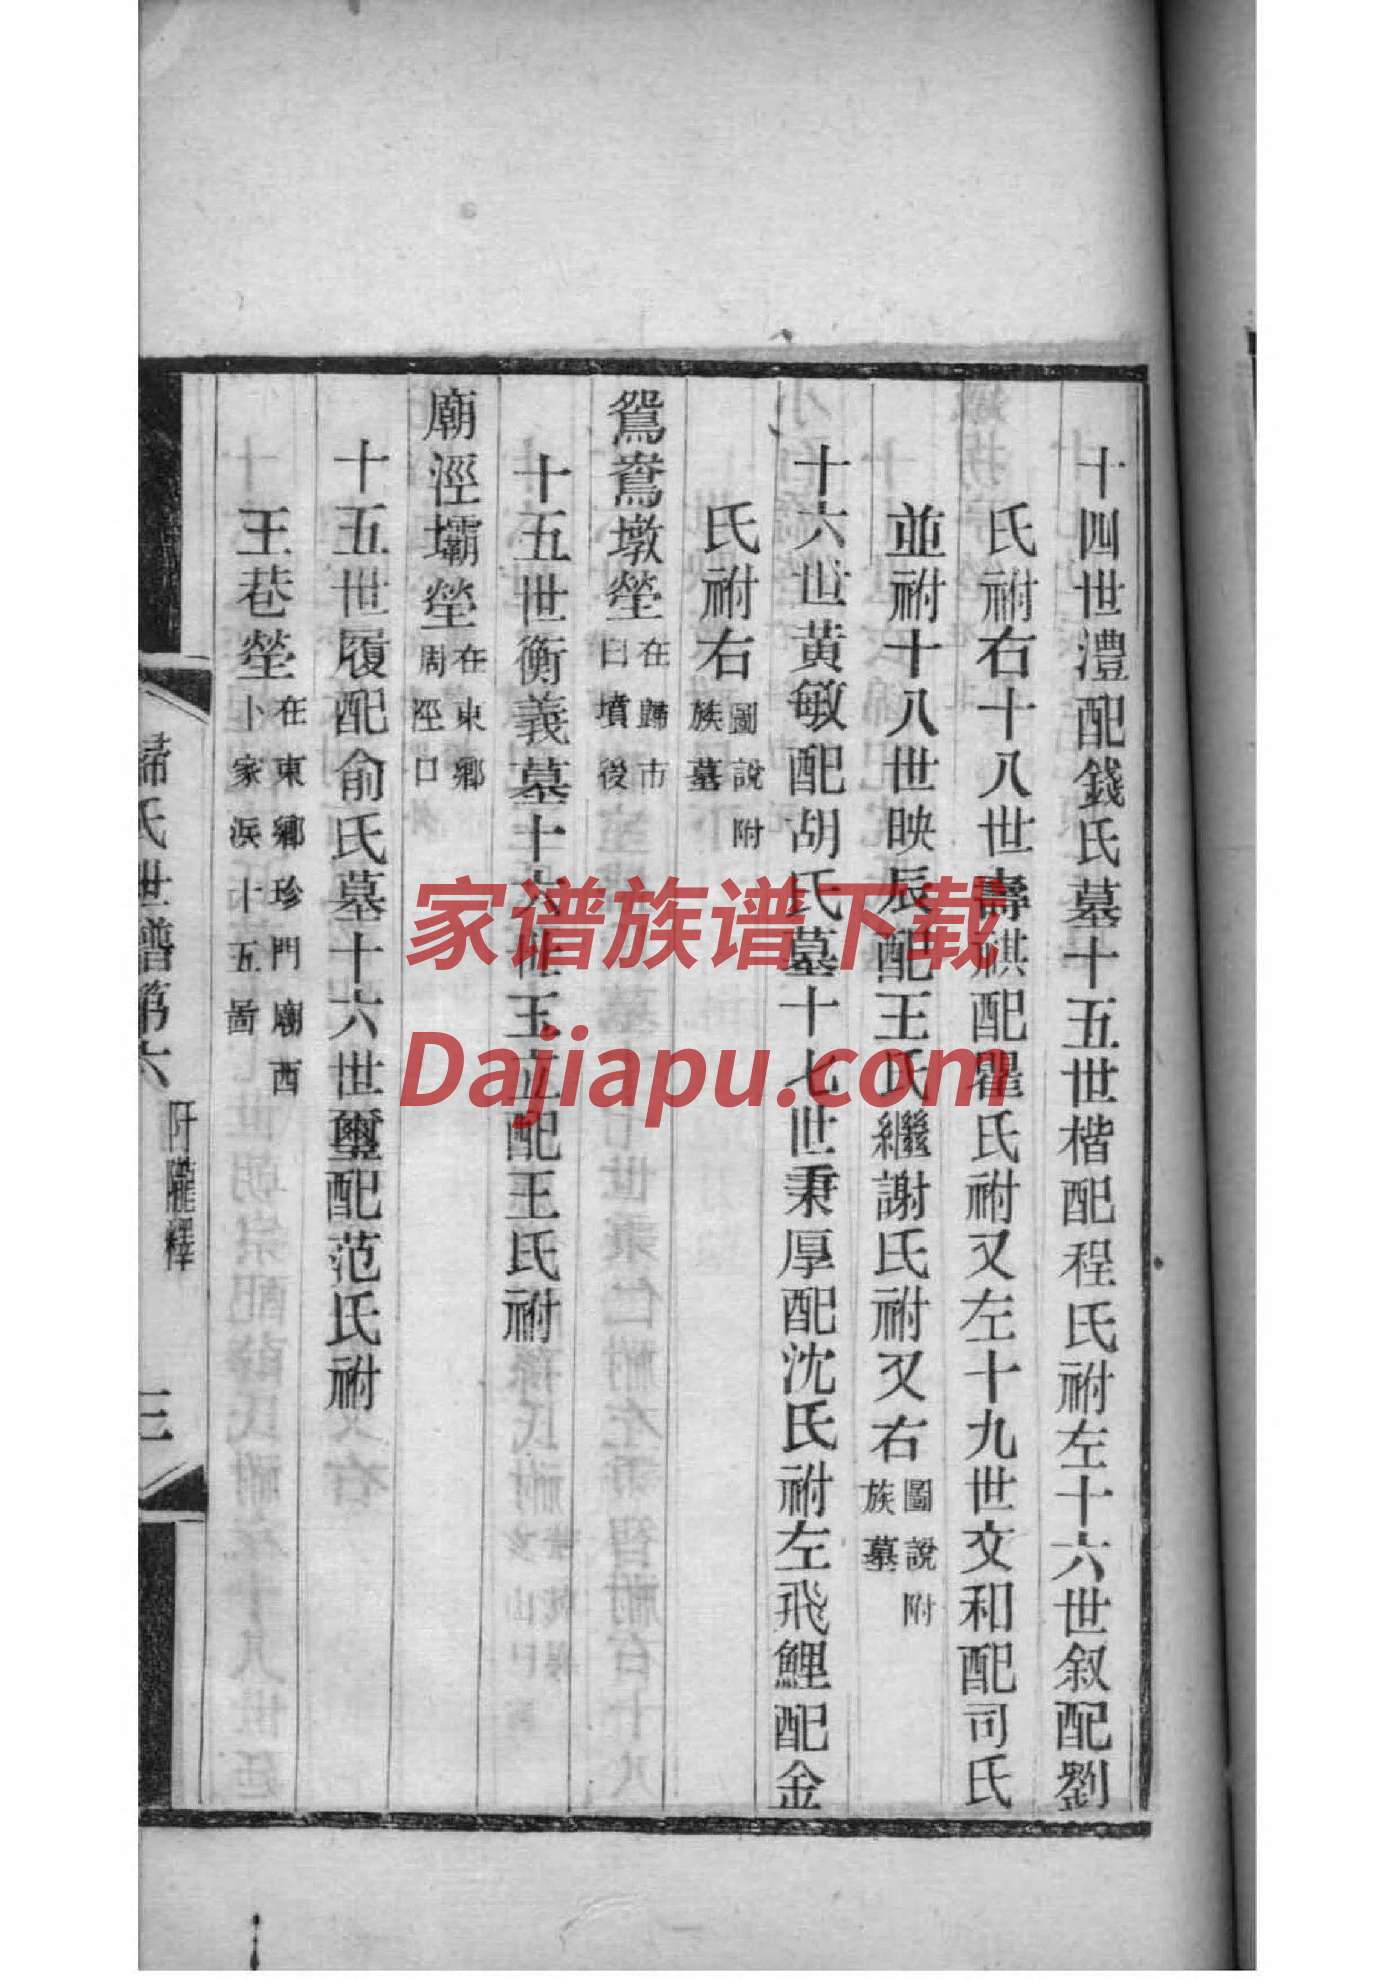 十四世澧配錢氏墓十五世楷配程氏祔左十六世叙配劉
氏祔右十八世壽祺配瞿氏祔又左十九世文和配司氏
並祔十八世映辰配王氏繼謝氏祔又右圖說附族墓
十六世黃敏配胡氏墓十七世秉厚配沈氏祔左飛鯉配金
氏祔右圖說附族墓
鴛鴦墩塋在歸市曰墳後
十五世衡義墓十六世玉立配王氏祔
廟涇壩塋在東鄉周涇口
十五世履配俞氏墓十六世璽配范氏祔
王巷塋在東鄉珍門廟西卜家浜十五啚
歸氏世譜第六
阡隴釋
三
家谱族谱下载
Dajiapu.com